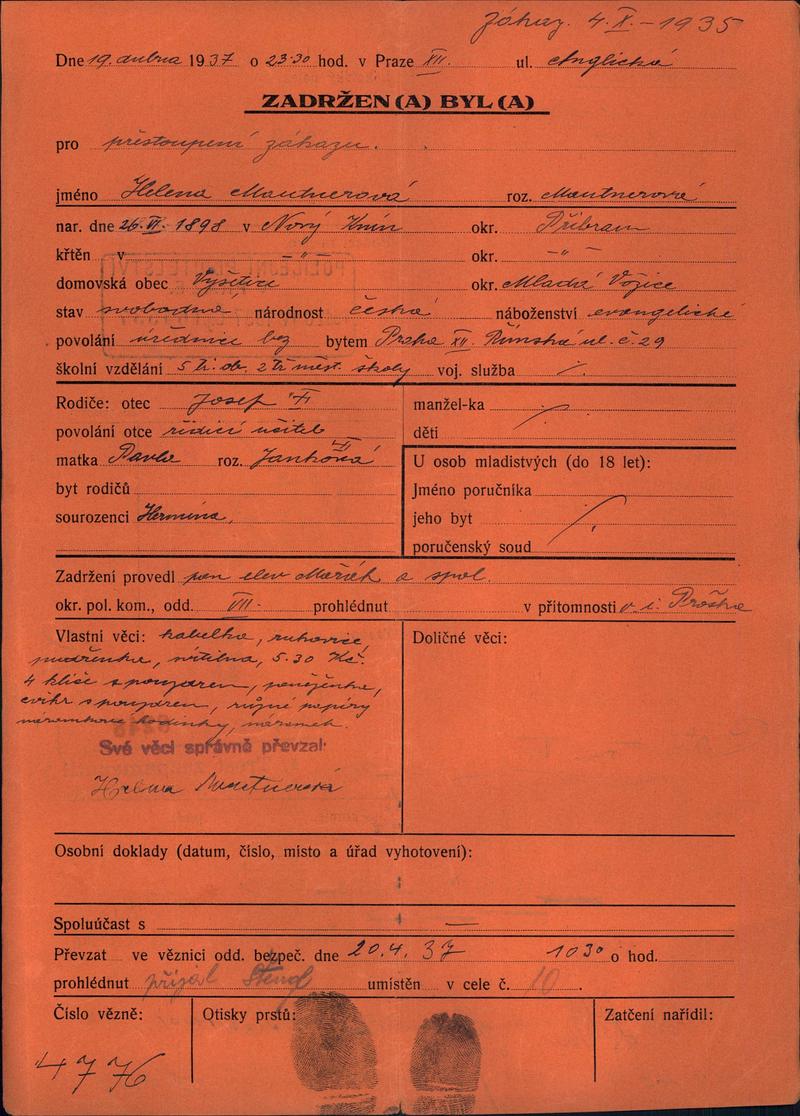 Zákaz. 4. X. - 1935
Dne 19. dubna 1937 o 23·30 hod. v Praze XII. ul. Anglická
ZADRŽEN(A) BYL(A)
pro přestoupení zákazu.
jméno Helena Mautnerová roz. Mautnerová
nar. dne 26. VI. 1898 v Nový Knín okr. Příbram
křtěn v – " – okr. – " –
domovská obec okr. Mladá Vožice
stav svobodná, národnost česká náboženství evangelické
povolání úřednice bez bytem Praha XII. Římská ul. č. 29
školní vzdělání 5 tř. ob. 2 tř. měšt. školy voj. služba /.
Rodiče: otec Josef manžel-ka /
povolání otce řídící učitel děti
matka Pavla roz. U osob mladistvých (do 18 let):
byt rodičů Jméno poručníka
sourozenci Hermína, jeho byt /.
poručenský soud
Zadržení provedl pan elev a spol.
okr. pol. kom., odd. VII. prohlédnut v přítomnosti v. i.
Vlastní věci: kabelka, rukavice, Doličné věci:
pudřenka, svítilna, 5·30 Kč.
4 klíče s pouzdrem, peněženka,
cvikr s pouzdrem, různé papíry
náramkové hodinky, náramek.
Své věci správně převzal·
Helena Mautnerová
Osobní doklady (datum, číslo, místo a úřad vyhotovení):
Spoluúčast s —
Převzat ve věznici odd. bezpeč. dne 20. 4. 37 10 30 o hod.
prohlédnut přijal Štengl umístěn v cele č. 10.
Číslo vězně: Otisky prstů: Zatčení nařídil:
4776